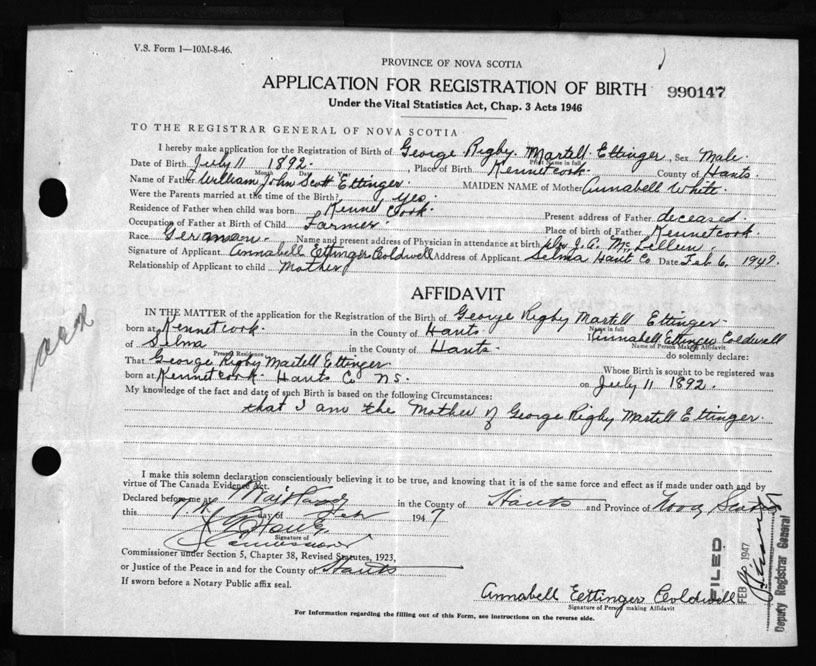 V.S. Form 1—10M-8-46.
PROVINCE OF NOVA SCOTIA
APPLICATION FOR REGISTRATION OF BIRTH 990147
Under the Vital Statistics Act, Chap. 3 Acts 1946
TO THE REGISTRAR GENERAL OF NOVA SCOTIA
I hereby make application for the Registration of Birth of George Rigby Martell Ettinger Sex Male
Print Name in full
Date of Birth July 11 1892. Place of Birth Kennetcook County of Hants.
Month Date Year
Name of Father William John Scott Ettinger. MAIDEN NAME of Mother Annabell White
Were the Parents married at the time of the Birth? Yes.
Residence of Father when child was born Kennet Cook. Present address of Father deceased.
Occupation of Father at Birth of Child Farmer Place of birth of Father Kennetcook.
Race German Name and present address of Physician in attendance at birth J. A. McLellen.
Signature of Applicant Annabell Ettinger Coldwell Address of Applicant Selma Hant Co Date Feb 6, 1947
Relationship of Applicant to child Mother
AFFIDAVIT
IN THE MATTER of the application for the Registration of the Birth of George Rigby Martell Ettinger
Name in full
born at Kennetcook in the County of Hants. Annabell Ettinger Coldwell
Name of Person Making Affidavit
of Selma in the County of Hants. do solemnly declare:
Present Residence
That George Rigby Martell Ettinger Whose Birth is sought to be registered was
born at Kennetcook Hants Co NS. on July 11 1892.
My knowledge of the fact and date of such Birth is based on the following Circumstances:
that I am the Mother of George Rigby Martell Ettinger.
I make this solemn declaration conscientiously believing it to be true, and knowing that it is of the same force and effect as if made under oath and by
virtue of The Canada Evidence Act.
Declared before me at Maitland in the County of Hants and Province of Nova Scotia
this day of Feb 1947
Signature of
Commissioner
Commissioner under Section 5, Chapter 38, Revised Statutes, 1923,
or Justice of the Peace in and for the County of Hants
If sworn before a Notary Public affix seal.
Annabell Ettinger Coldwell
Signature of Person making Affidavit
For Information regarding the filling out of this Form, see instructions on the reverse side.
FILED
FEB 1947
Deputy Registrar General